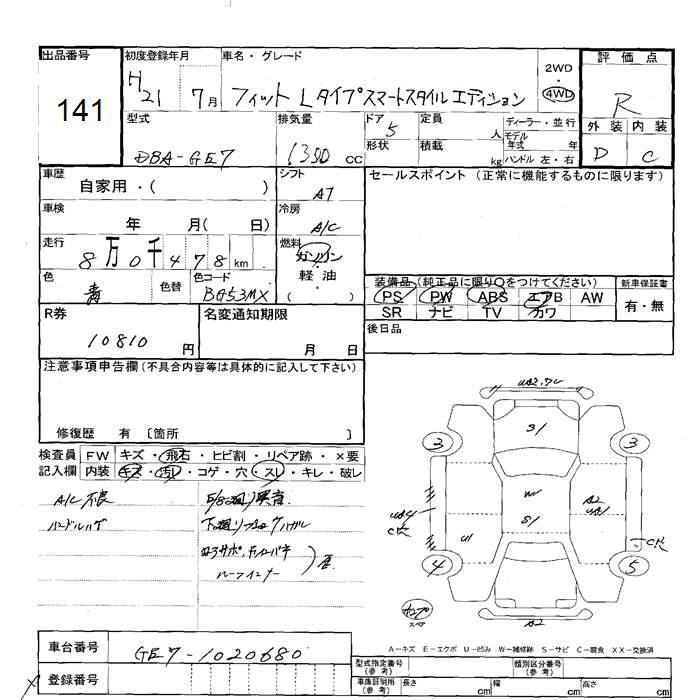 出品番号
141
初度登録年月
H21 7月
車名・グレード
フィット Lタイプスマートスタイル エディション
2WD
・
4WD
評価点
R
型式
DBA-GE7
排気量
1300 CC
ドア 5
形状
定員 人
積載 kg
ディーラー・並行
モデル年式 年
ハンドル 左・右
外装 内装
D C
車歴
自家用・( )
シフト
AT
セールスポイント (正常に機能するものに限ります)
車検
年 月( 日)
冷房
A/C
走行
8万0千478km
燃料
ガソリン
・
軽油
( )
色
青
色替
色コード
BG53MX
装備品 (純正品に限り○をつけてください)
PS PW ABS エアB AW
SR ナビ TV カワ
新車保証書
有・無
R券
10810 円
名変通知期限
月 日
後日品
注意事項申告欄(不具合内容等は具体的に記入して下さい)
修復歴 有 〔箇所 〕
検査員記入欄
FW キズ・飛石・ヒビ割・リペア跡・×要
内装 キズ・汚レ・コゲ・穴・スレ・キレ・破レ
A/C不良
ハンドルハゲ
U2
S/
3 3
W
S/
A2
U/
4 5
スペア
A2
A-キズ E-エクボ U-凹み W-補修跡 S-サビ C-腐食 XX-交換済
車台番号
GE7-1020680
登録番号
型式指定番号(参考)
類別区分番号(参考)
車庫証明用(参考)
長さ cm
幅 cm
高さ cm